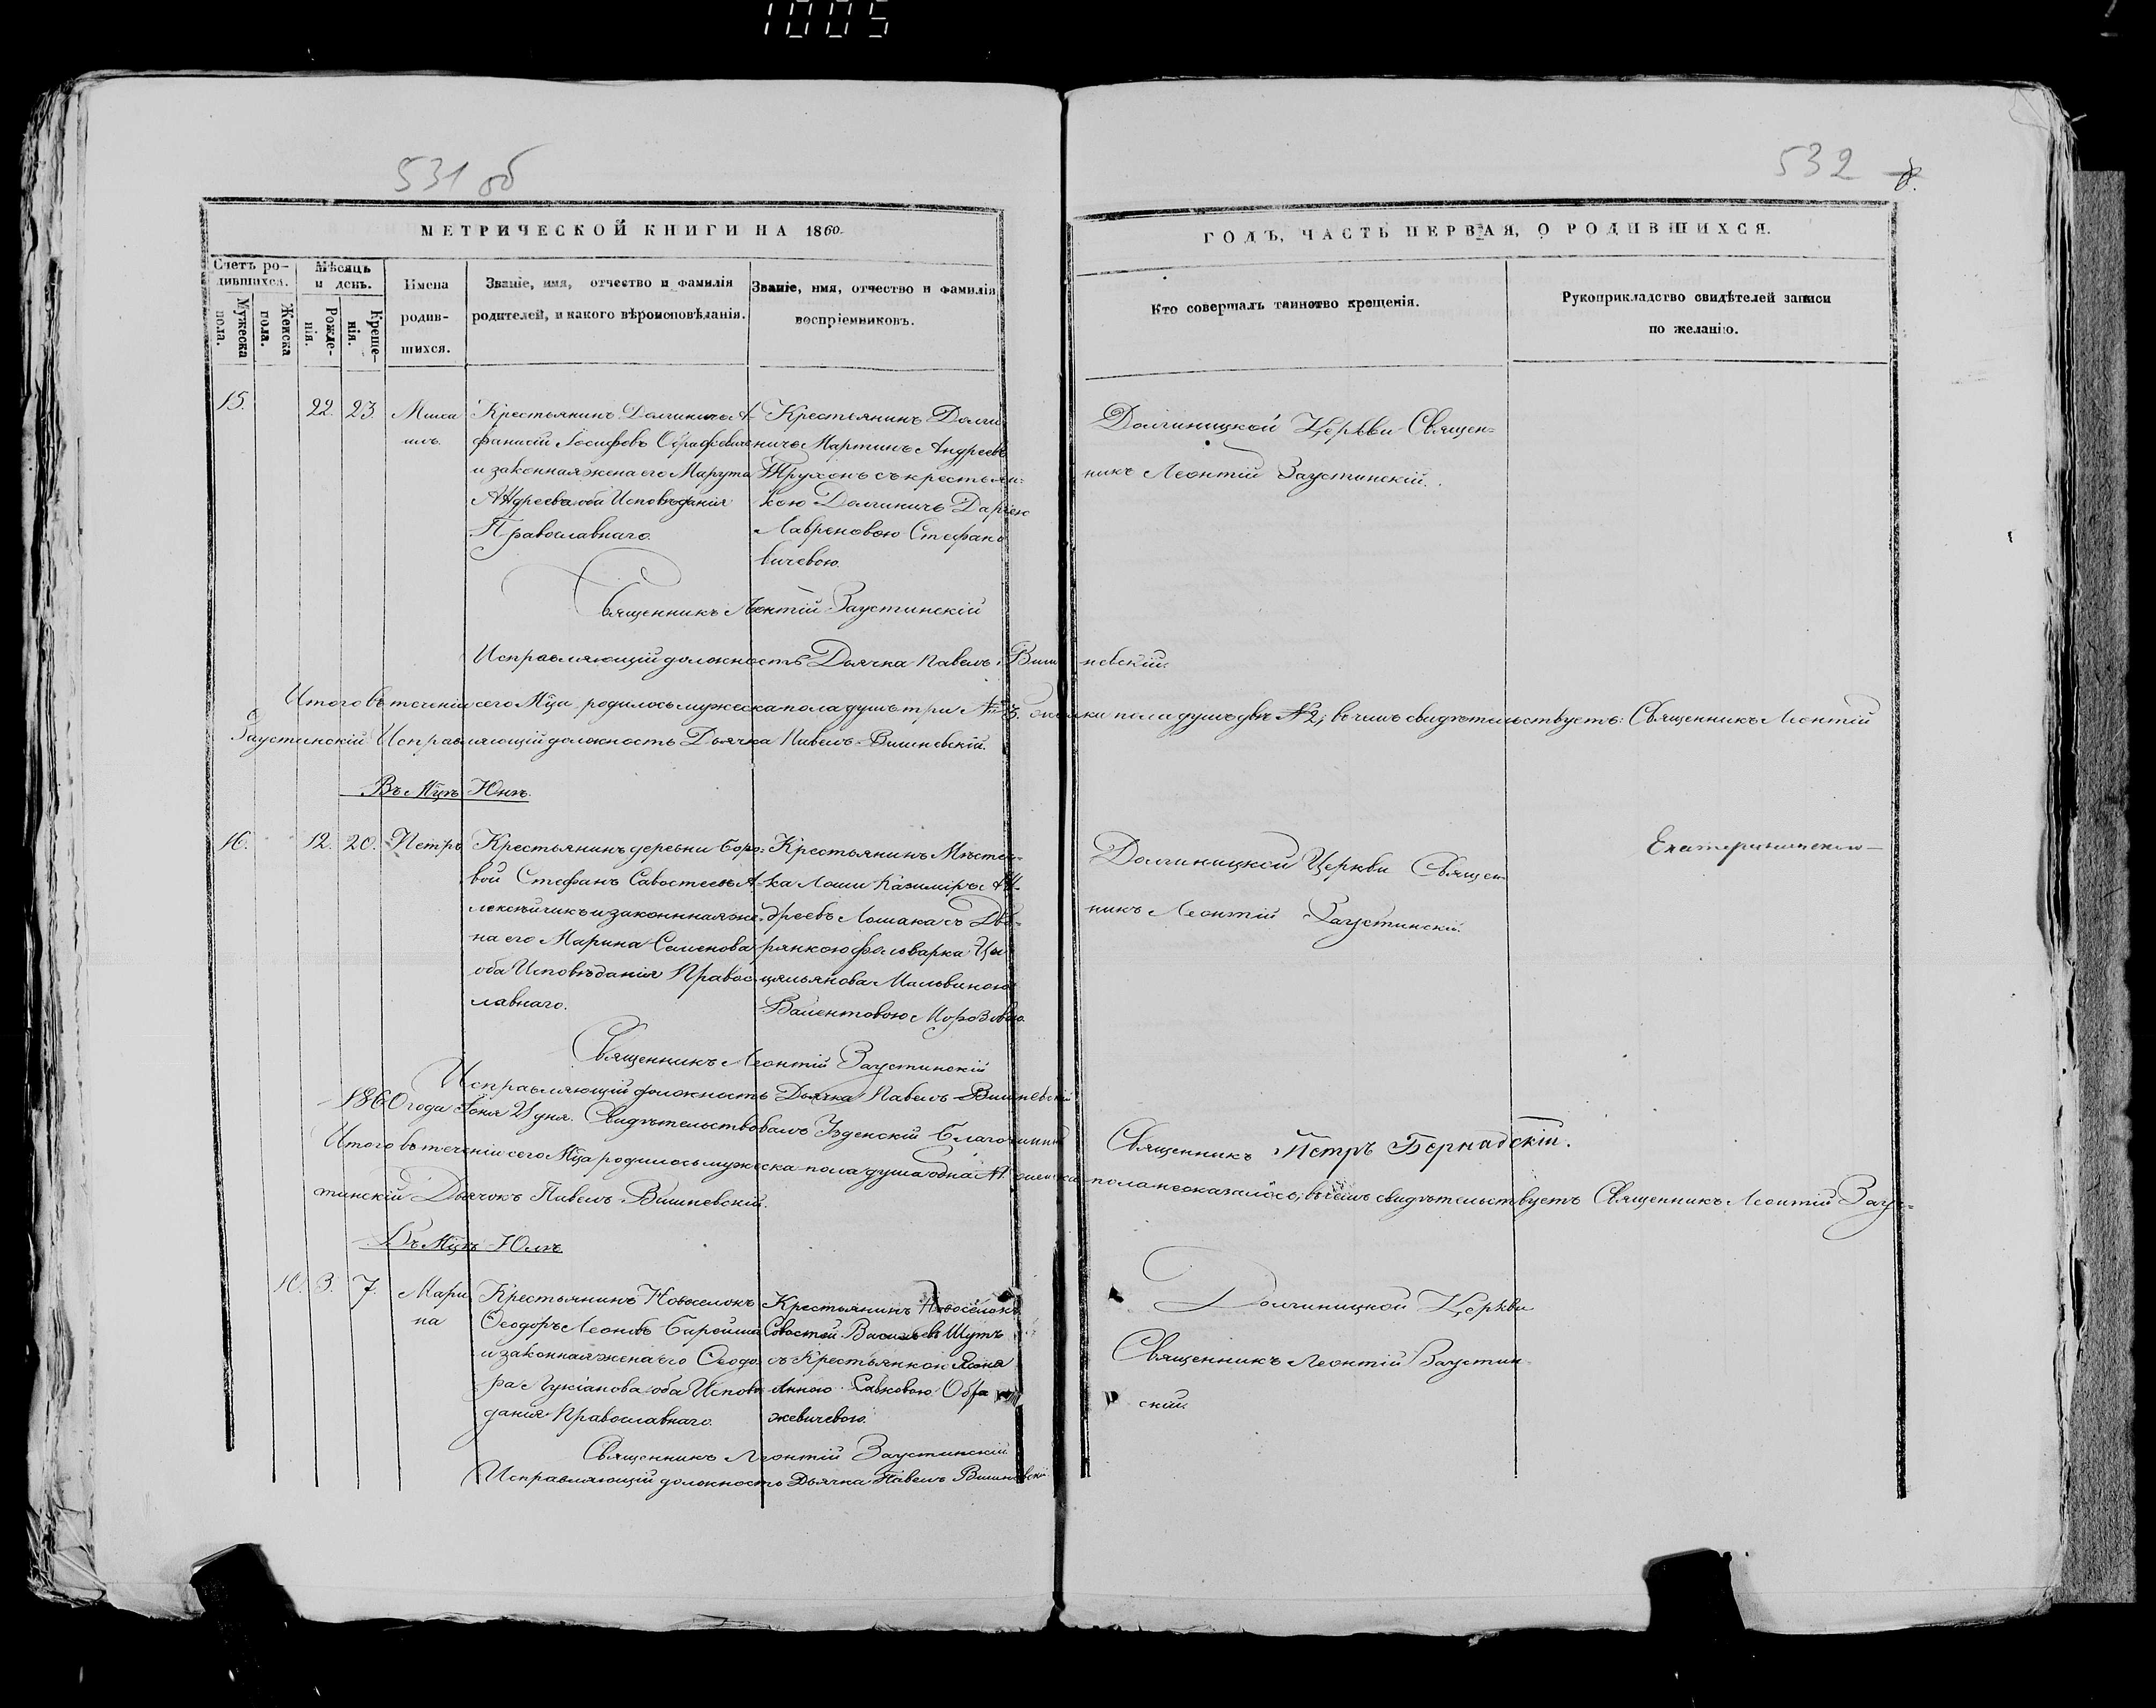 1005
531 об
532
МЕТРИЧЕСКОЙ КНИГИ НА 1860.
Счетъ ро-
дившихся.
Мужеска
пола.
Женска
пола.
Мѣсяцъ
и день.
Рожде-
нія.
Креще-
нія.
Имена
родив-
шихся.
Званіе, имя, отчество и фамилія
родителей, и какого вѣроисповѣданія.
Званіе, имя, отчество и фамилія
воспріемниковъ.
ГОДЪ, ЧАСТЬ ПЕРВАЯ, О РОДИВШИХСЯ.
Кто совершалъ таинство крещенія.
Рукоприкладство свидѣтелей записи
по желанію.
15. 22. 23.
Миха
илъ.
Крестьянинъ Долгиничъ А-
фанасій Іосифовъ
и законная жена его Марута
Андреева оба Исповѣданія
Православнаго.
Крестьянинъ Долги
ничъ Мартинъ Андреевъ
Трухонъ съ крестьян-
кою Долгиничъ Даріею
Лавреновою Стефано
вичевою.
Долгиницкой Церкви Священ-
никъ Леонтій Заустинскій.
Священникъ Леонтій Заустинскій
Исправляющій должность Дьячка Павелъ Виш невскій.
Итого въ теченіи сего Мца родилось мужеска пола душъ три № 3. женска пола душъ двѣ № 2; въ чемъ свидѣтельствуетъ: Священникъ Леонтій
Заустинскій Исправляющій должность Дьячка Павелъ Вишневскій.
Въ Мцѣ Юнѣ.
16. 12. 20. Петръ
Крестьянинъ деревни Боро-
вой Стефанъ Савостеевъ А-
лексѣйчикъ и законнная же-
на его Марина Семенова
оба Исповѣданія Правос
лавнаго.
Крестьянинъ Мѣстеч-
ка Лоши Казиміръ Ан-
дреевъ Лошака съ Дво-
рянкою фольварка Це
цильянова Мальвиною
Валентовою Морозовою.
Долгиницкой Церкви Священ-
никъ Леонтій Заустинскій.
Священникъ Леонтій Заустинскій
Исправляющій должность Дьячка Павелъ Вишневскій
1860 года Іюня 21 дня. Свидѣтельствовалъ Узденскій Благочинный
Священникъ Петръ Бернадскій.
Итого въ теченіи сего Мца родилось мужеска пола душа одна №1. женска пола не оказалось; въ чемъ свидѣтельствуетъ Священникъ Леонтій Заус-
тинскій Дьячокъ Павелъ Вишневскій.
Въ Мцѣ Юлѣ
10. 3. 7.
Мари
на
Крестьянинъ Новоселокъ
Ѳеодоръ Леоновъ Баройша
и законная жена его Ѳеодо
ра Лукіанова оба Исповѣ
данія Православнаго.
Крестьянинъ Новоселокъ
Савостей Васильевъ Шутъ
съ Крестьянкою
Анною Савковою Обра
жевичевою.
Долгиницкой Церкви
Священникъ Леонтій Заустин-
скій.
Священникъ Леонтій Заустинскій
Исправляющій должность Дьячка Павелъ Вишневскій